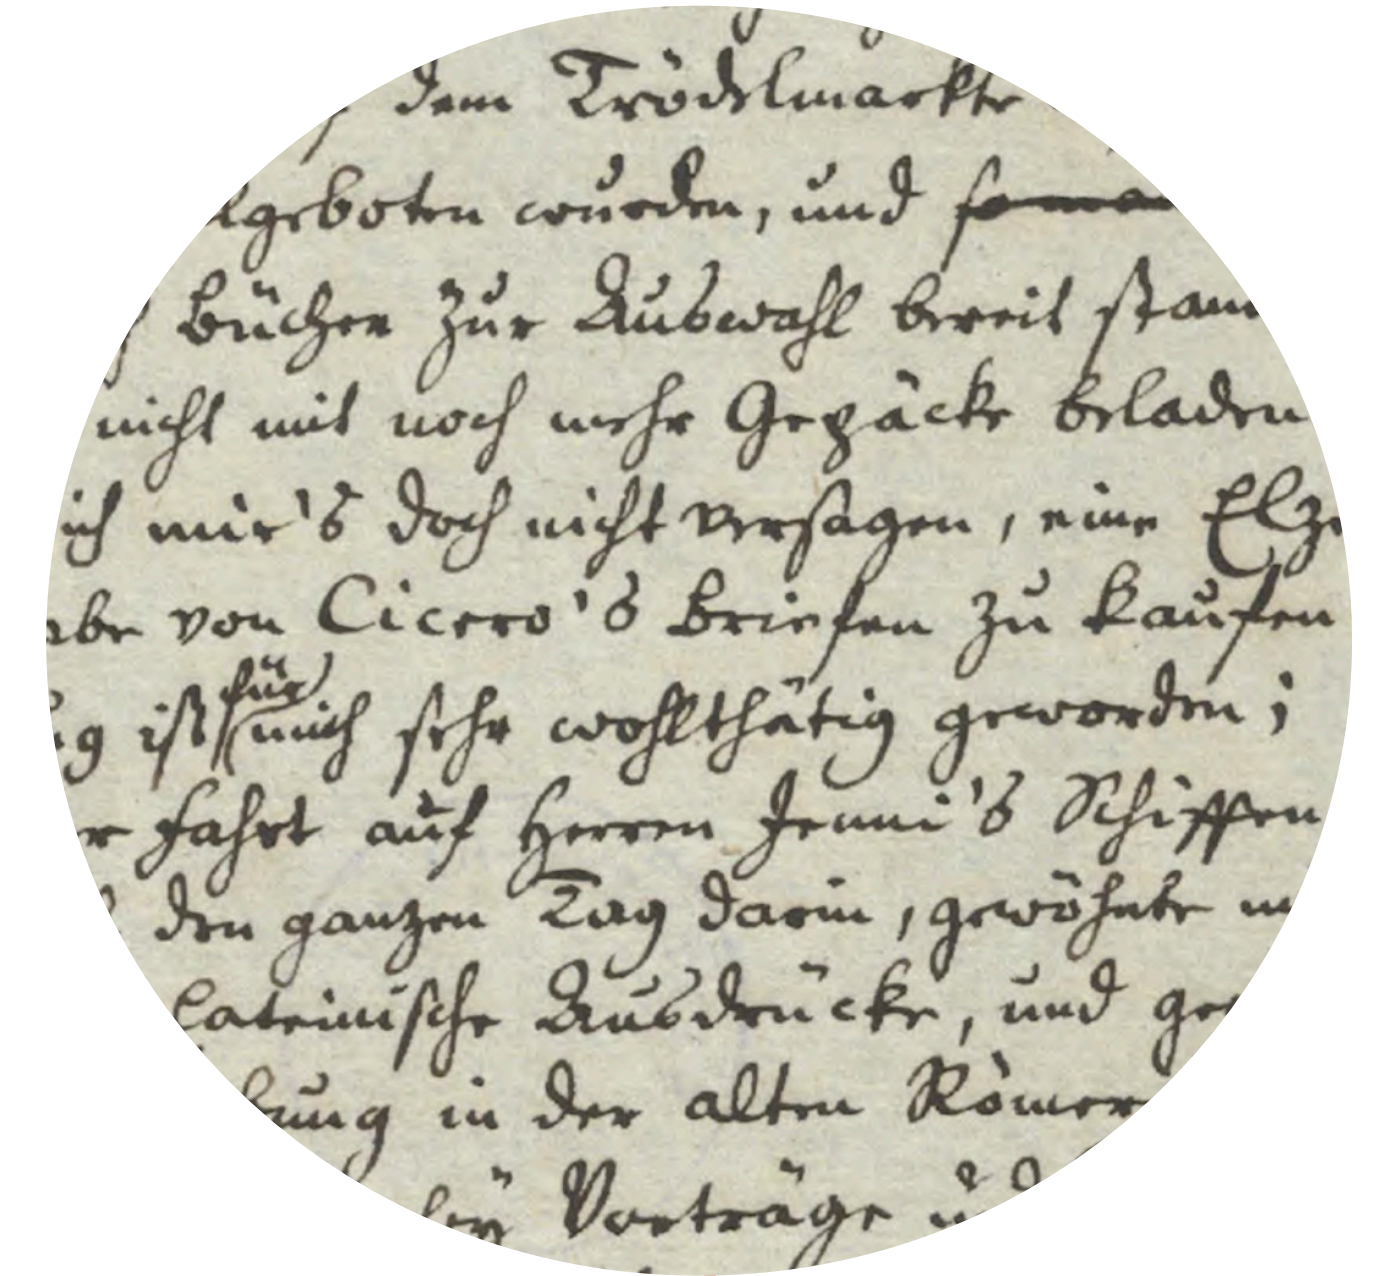 dem Trödelmarkte
lgeboten wurden, und
Bücher zur Auswahl bereit stan
nicht mit noch mehr Gepäcke beladen
ich mir's doch nicht versagen, eine Elze
abe von Cicero's Briefen zu kaufen
ng ist für mich sehr wohlthätig geworden;
er Fahrt auf Herren Jenni's Schiffen
den ganzen Tag darin, gewöhnte m
lateinische Ausdrücke, und ge
bung in der alten Römer
ley Vorträge